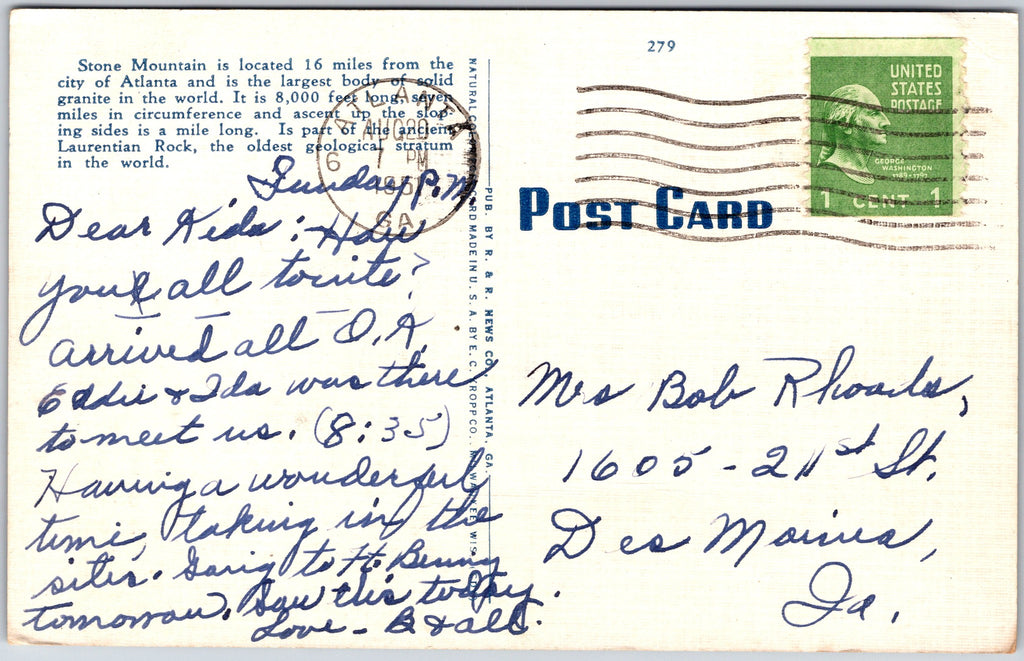 279
Stone Mountain is located 16 miles from the
city of Atlanta and is the largest body of solid
granite in the world. It is 8,000 feet long, seven
miles in circumference and ascent up the slop-
ing sides is a mile long. Is part of the ancient
Laurentian Rock, the oldest geological stratum
in the world.
ATLANTA
AUG 20
6 PM
195
GA.
UNITED
STATES
POSTAGE
GEORGE
WASHINGTON
1789-1797
1 CENT 1
POST CARD
PUB. BY R. & R. NEWS CO., ATLANTA, GA.
NATURAL CARD MADE IN U. S. A. BY E. C. KROPP CO., MILWAUKEE, WIS.
Sunday P.M.
Dear Aida: How
you all tonite?
arrived all O.K.
Eddie & Ida was there
to meet us. (8:35)
Having a wonderful
time, taking in the
sites. Going to Ft. Benny
tomorrow. Saw this today.
Love - B & all.
Mrs Bob Rhoads,
1605 - 21st St.
Des Moines,
Ia.